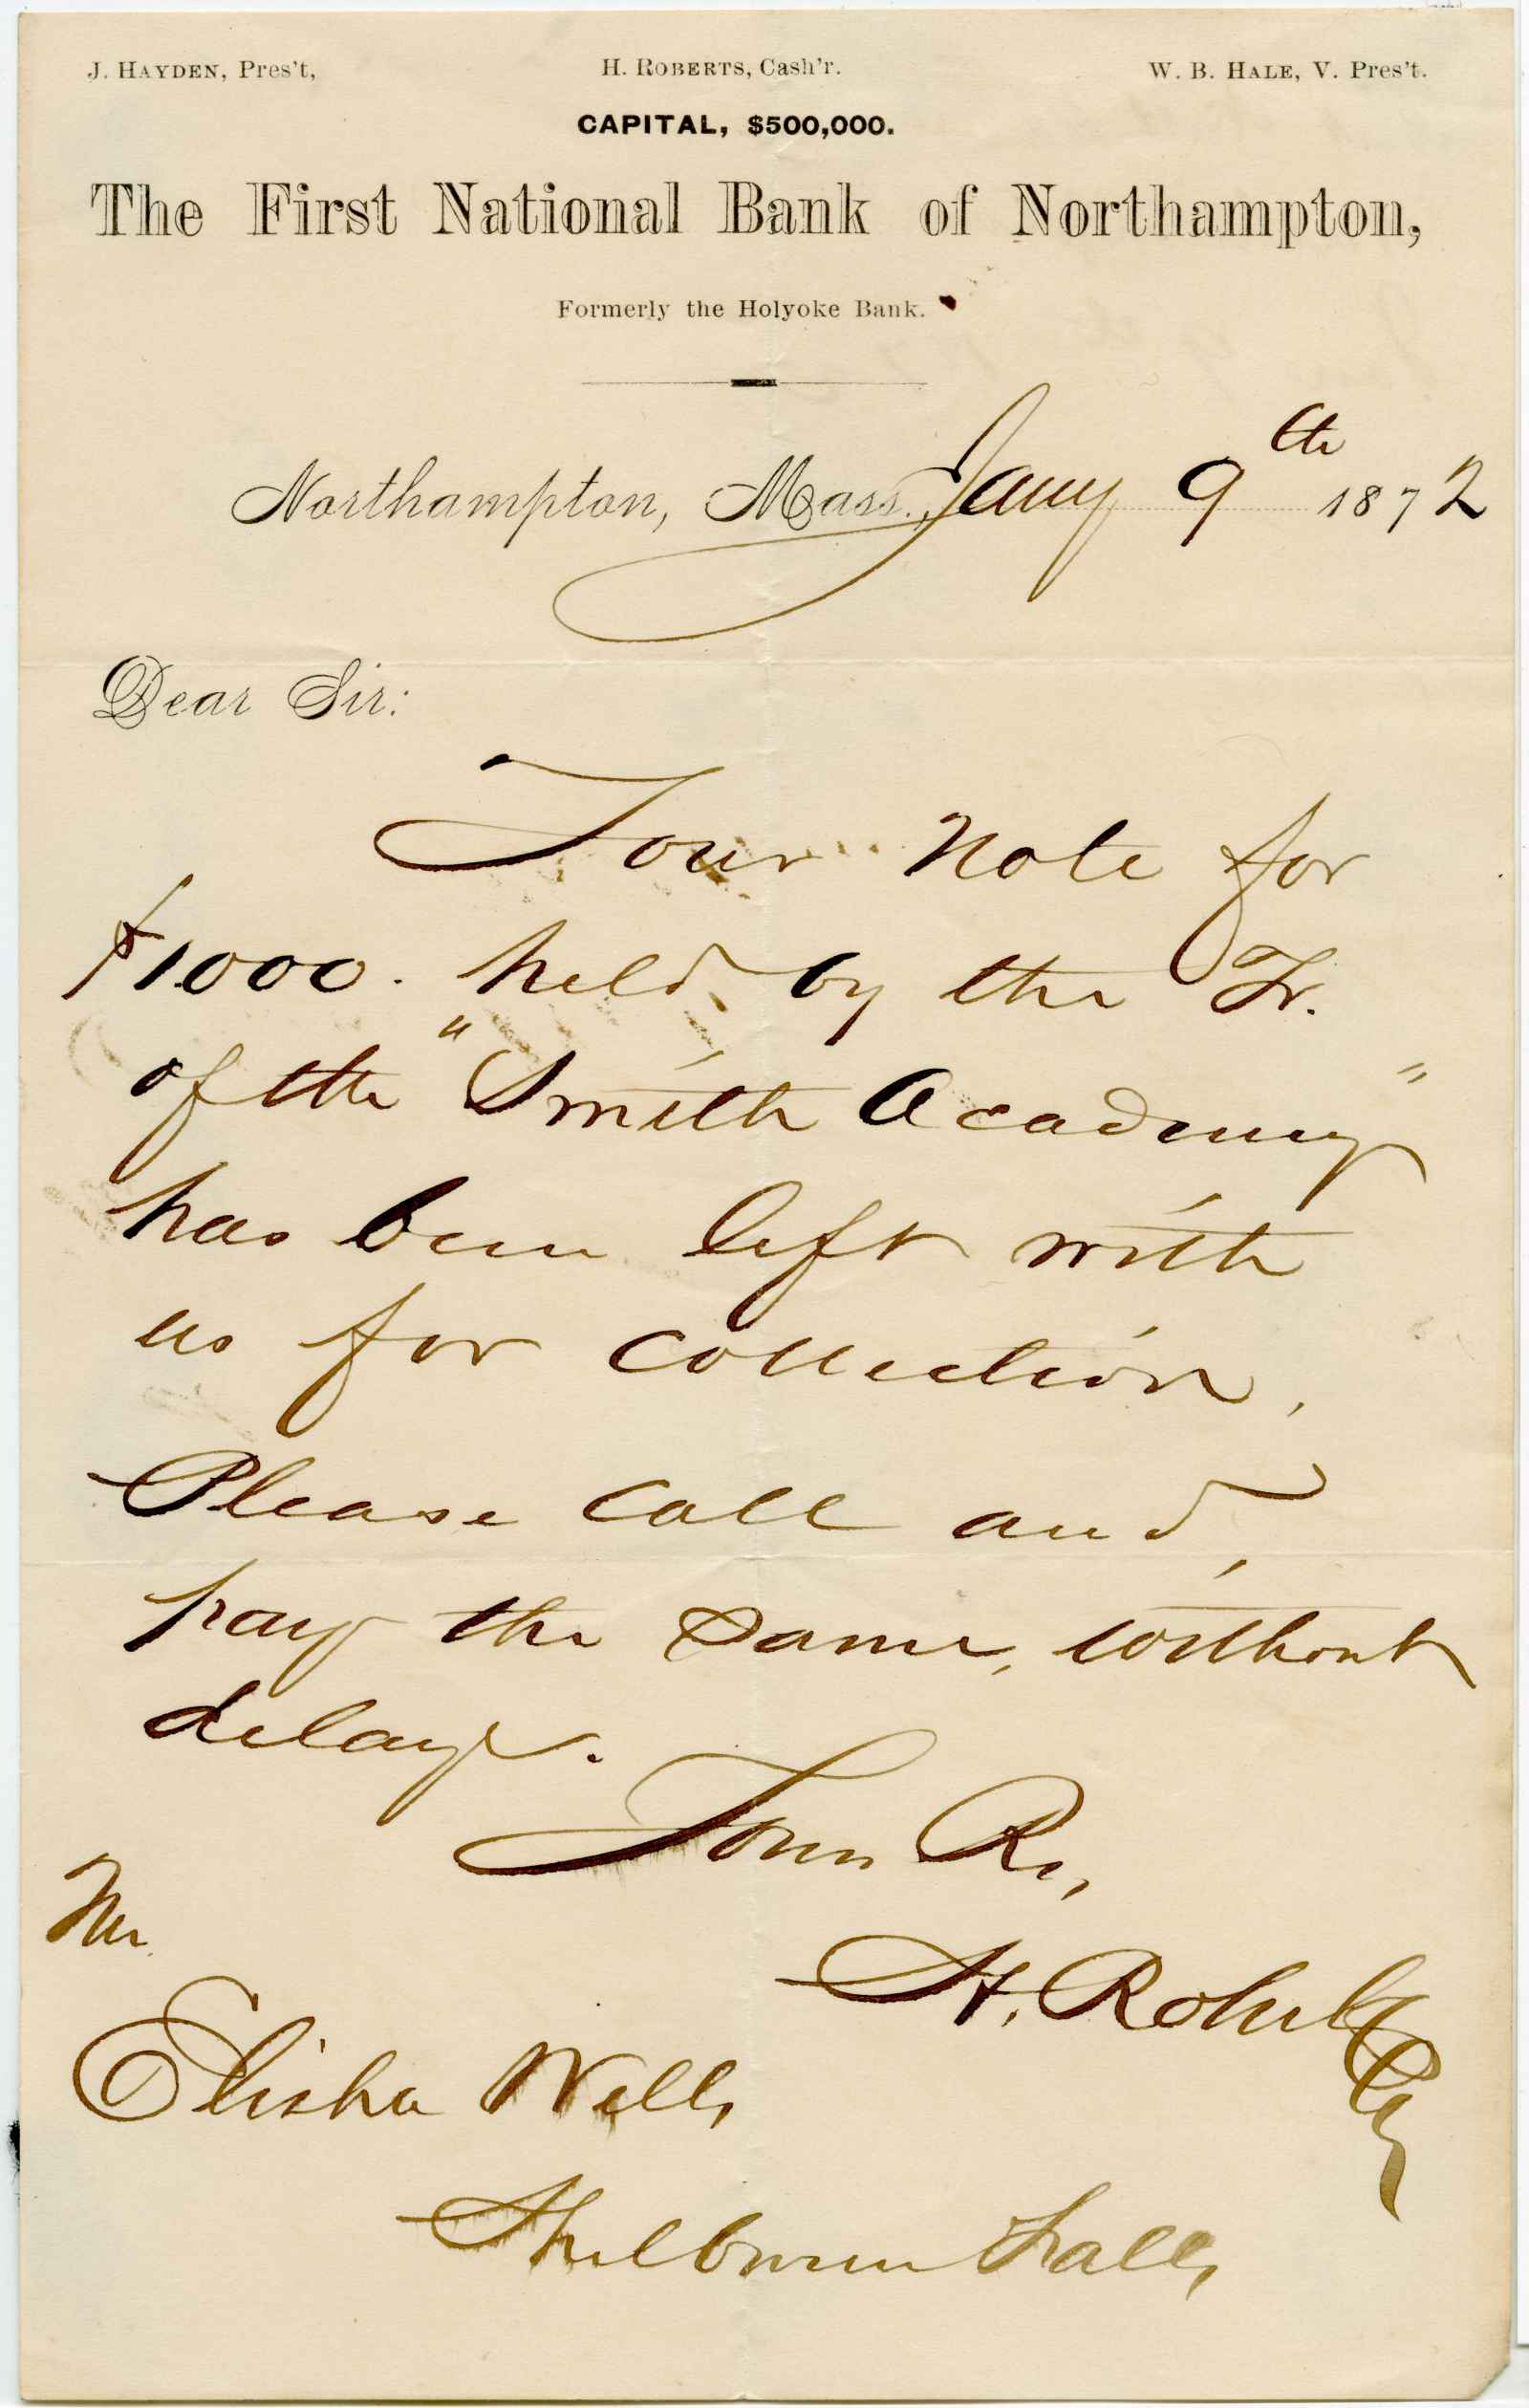 J. HAYDEN, Pres't, H. ROBERTS, Cash'r. W. B. HALE, V. Pres't.
CAPITAL, $500,000.
The First National Bank of Northampton,
Formerly the Holyoke Bank.
Northampton, Mass. Jany 9th 1872
Dear Sir:
Your Note for
$1000. held by the Tr.
of the "Smith Academy"
has been left with
us for collection.
Please call and
pay the same, without
delay.
Yours Re,
H. Roberts
Mr.
Elisha Wells
Shelburne Falls